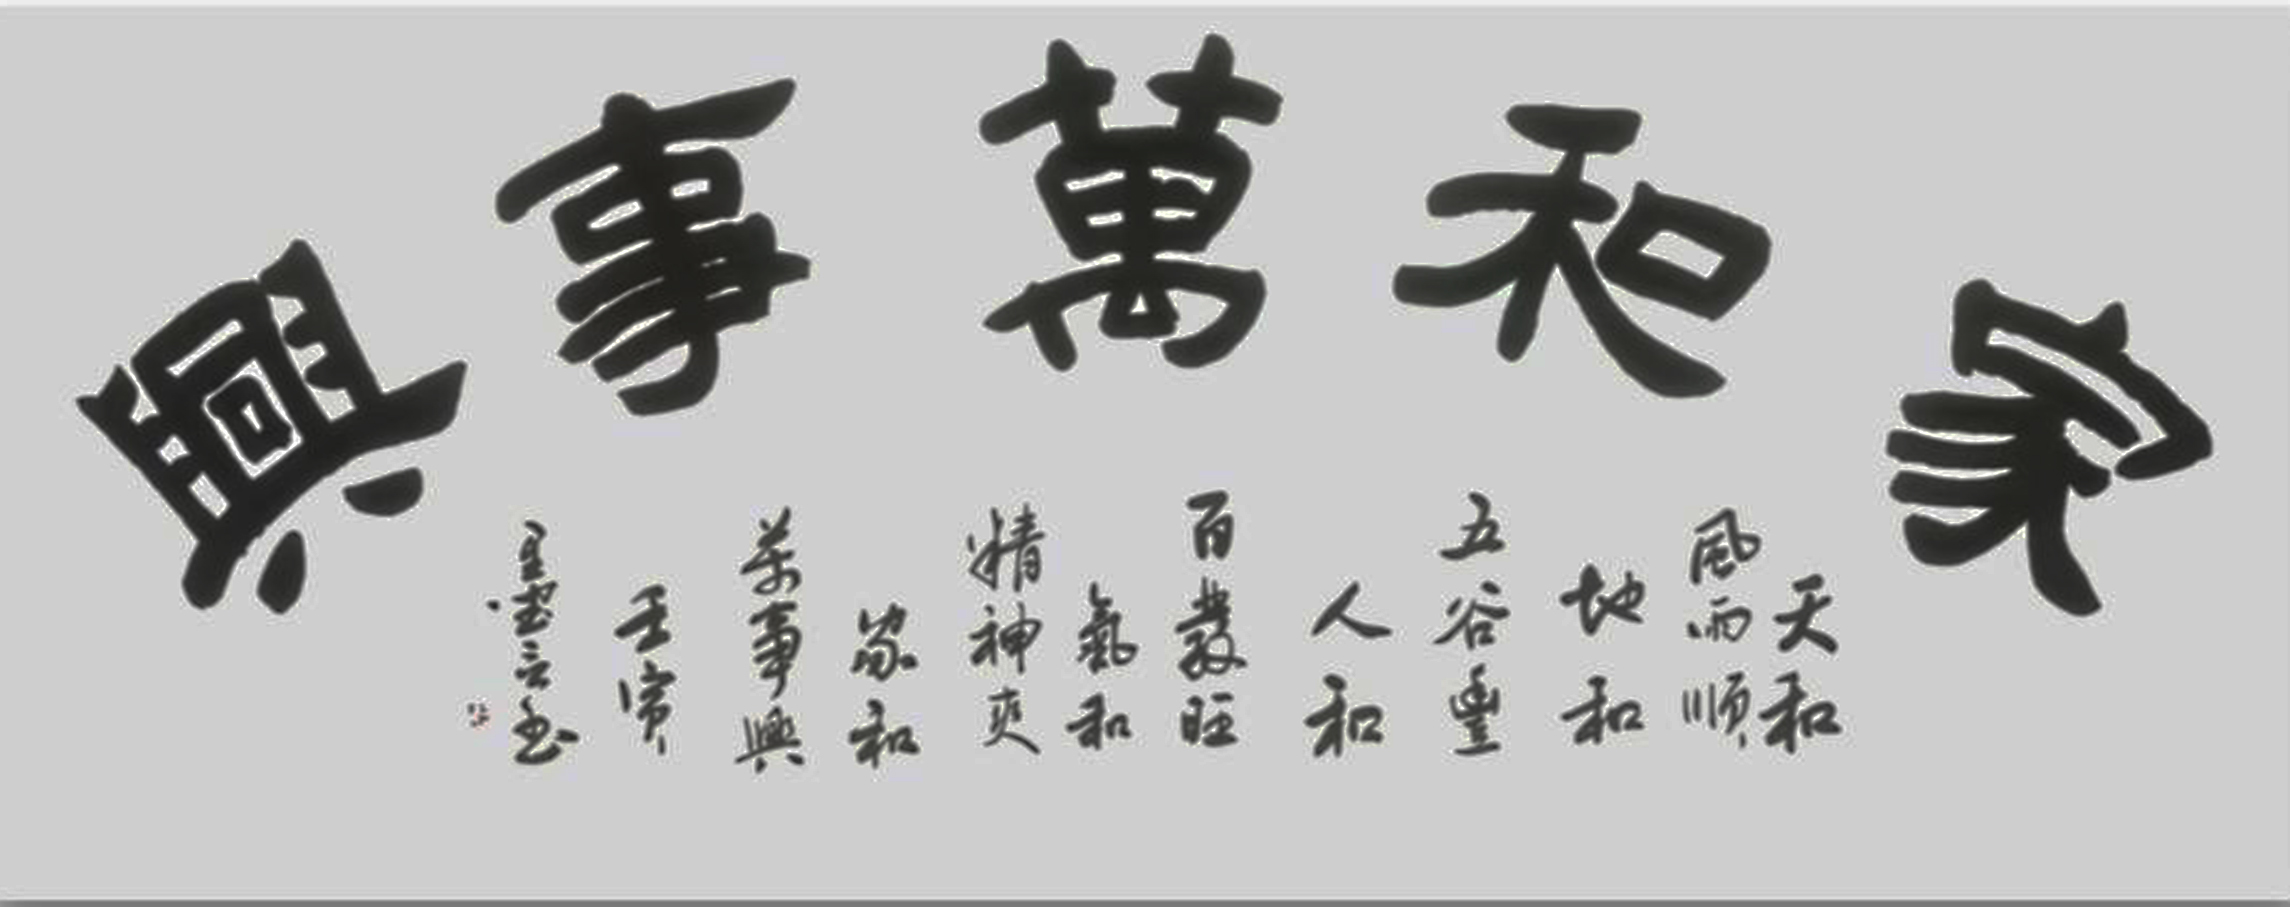 家和萬事興
天和
風雨順
地和
五谷豐
人和
百業旺
氣和
精神爽
家和
萬事興
壬寅